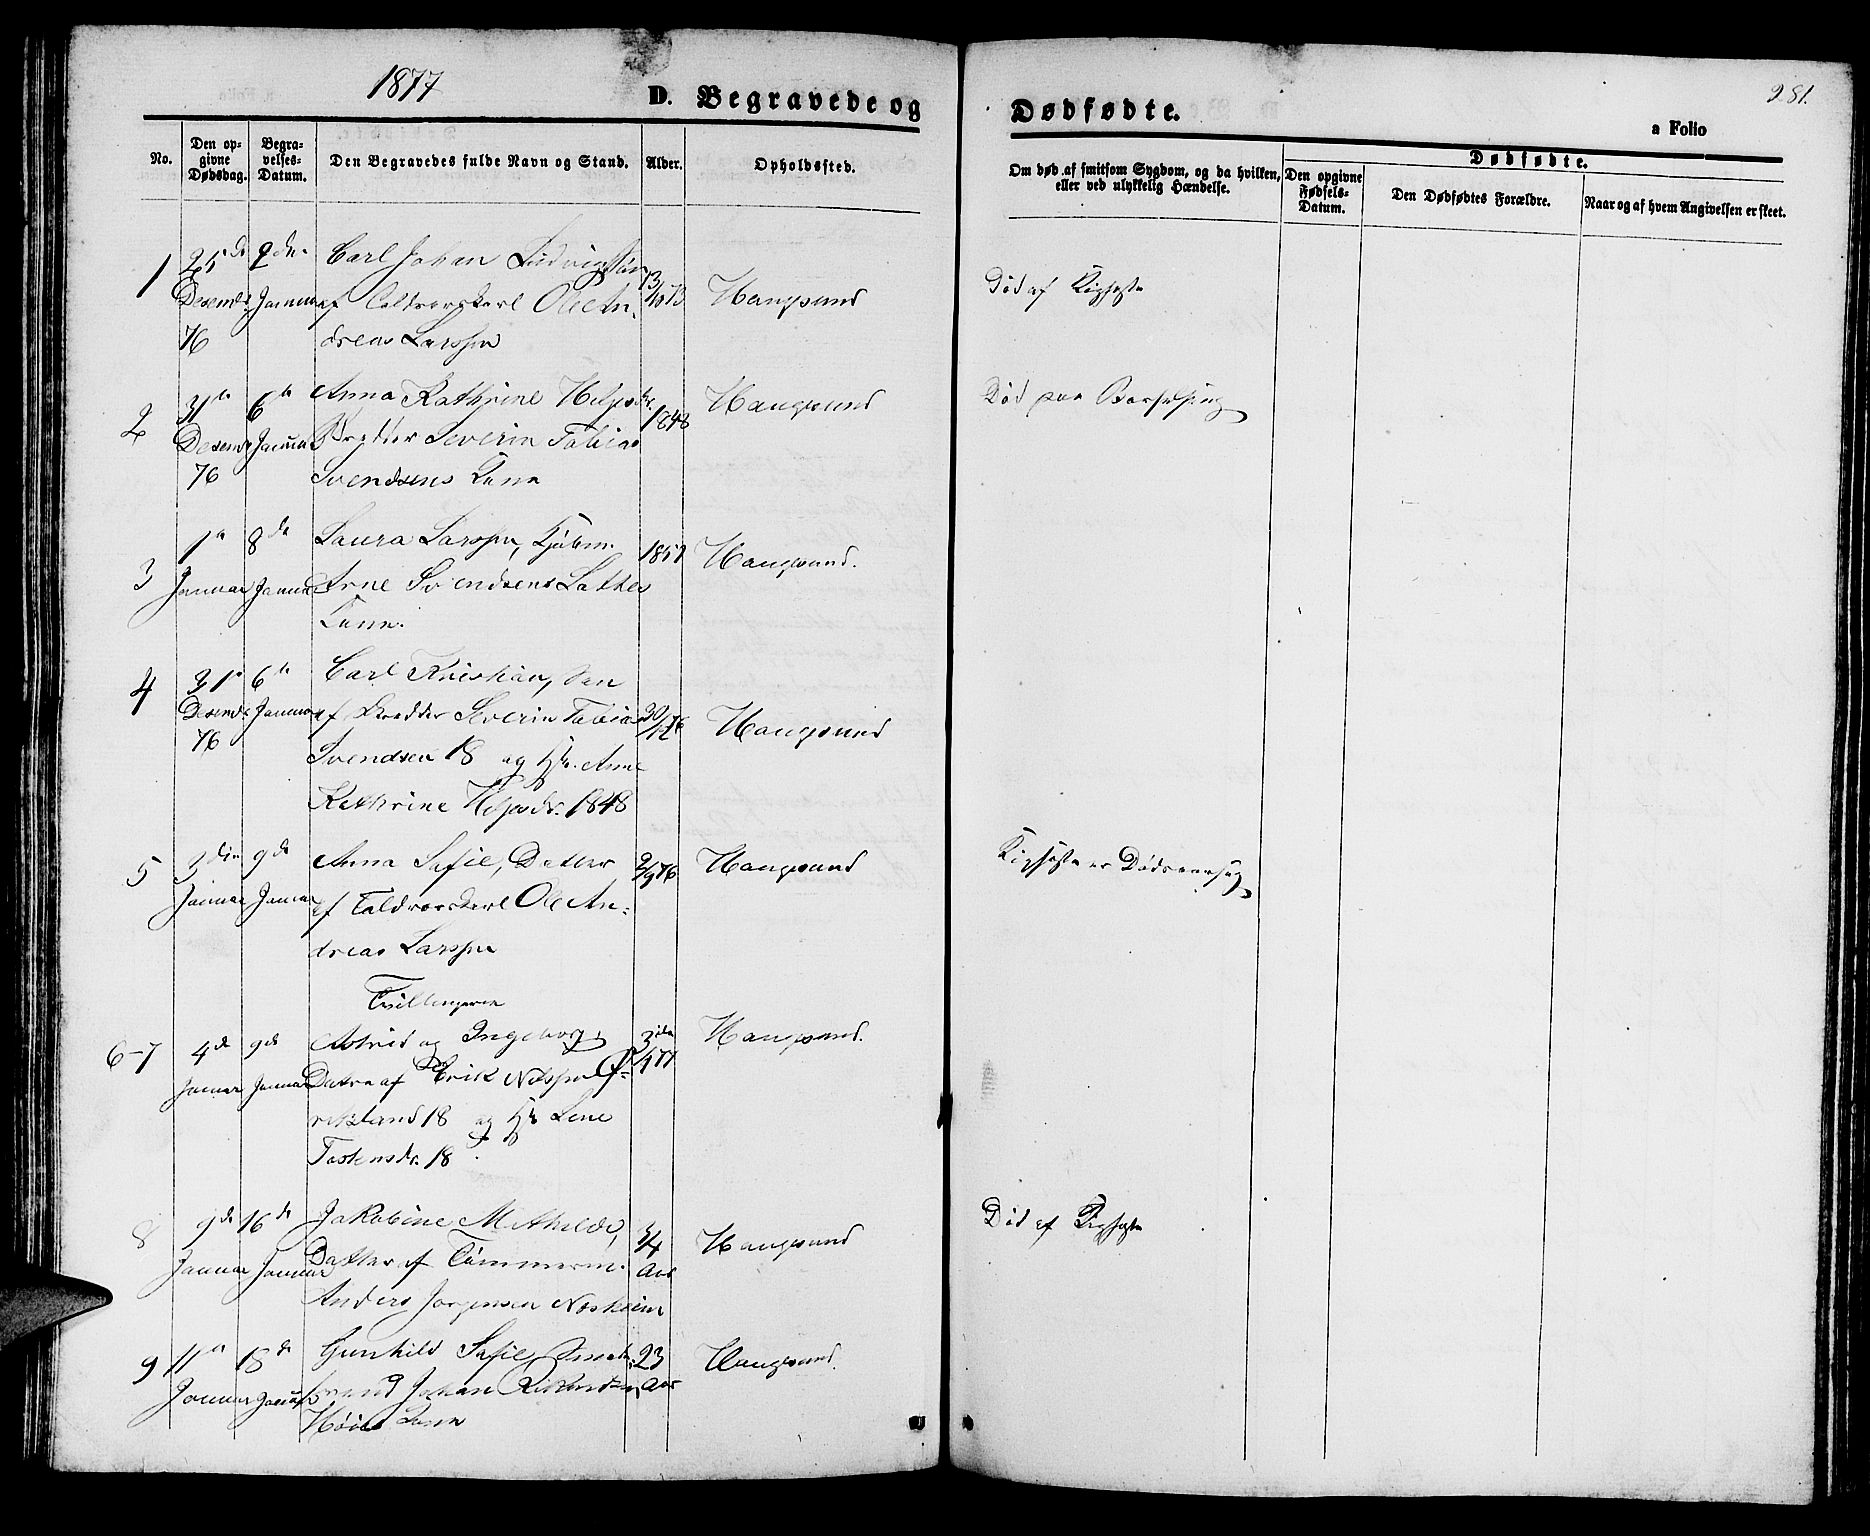 1877
D. Begravede og
Dødfødte.
281.
a Folio
No.
Den opgivne Dødsdag.
Begravelses-Datum.
Den Begravedes fulde Navn og Stand.
Alder.
Opholdssted.
Om død af smitsom Sygdom, og da hvilken, eller ved ulykkelig Hændelse.
Dødfødte.
Den opgivne Fødsels-Datum.
Den Dødfødtes Forældre.
Naar og af hvem Angivelsen er skeet.
1
25de Desembr 76
2den Januar
Carl Johan Ludvig, Søn
af Toldvorskarl Ole An-
dreas Larssen
13/10 73
Haugesund
Død af Kighoste
2
31te Desembr 76
6te Januar
Anna Kathrine Helgesdr.
Skrædder Severin Tobias
Svendsens Kone
1848
Haugesund
Død paa Barselseng
3
1te Januar
8de Januar
Laura Larssen, Kjøbm.
Arne Svendsens Sathes
Kone.
1857
Haugesund.
4
31te Desembr 76
6te Januar
Carl Kristian, Søn
af Skrædder Severin Tobias
Svendsen 18 og H. Anne
Kathrine Helgesdr. 1848
30/12 76
Haugesund
5
3die Januar
9de Januar
Anna Sofie, Datter
af Toldvorskarl Ole An-
dreas Larssen
2/9 76
Haugesund
Kighoste er Dødsaarsag
Tvillingerne
6-7
4de Januar
9de Januar
Astrid og Ingeborg,
Døtre af Erik Nilssen
18 og H. Lene
Tostensdr. 18
3/1 77
Haugesund.
8
9de Januar
16de Januar
Jakobine Mathilde,
Datter af Tømmerm.
Anders Jørgensen Næsheim
3/4 Aar
Haugesund
Død af Kighoste
9
11te Januar
18de Januar
Gunhild Sofie,
Johan
Kone
23 Aar
Haugesund.